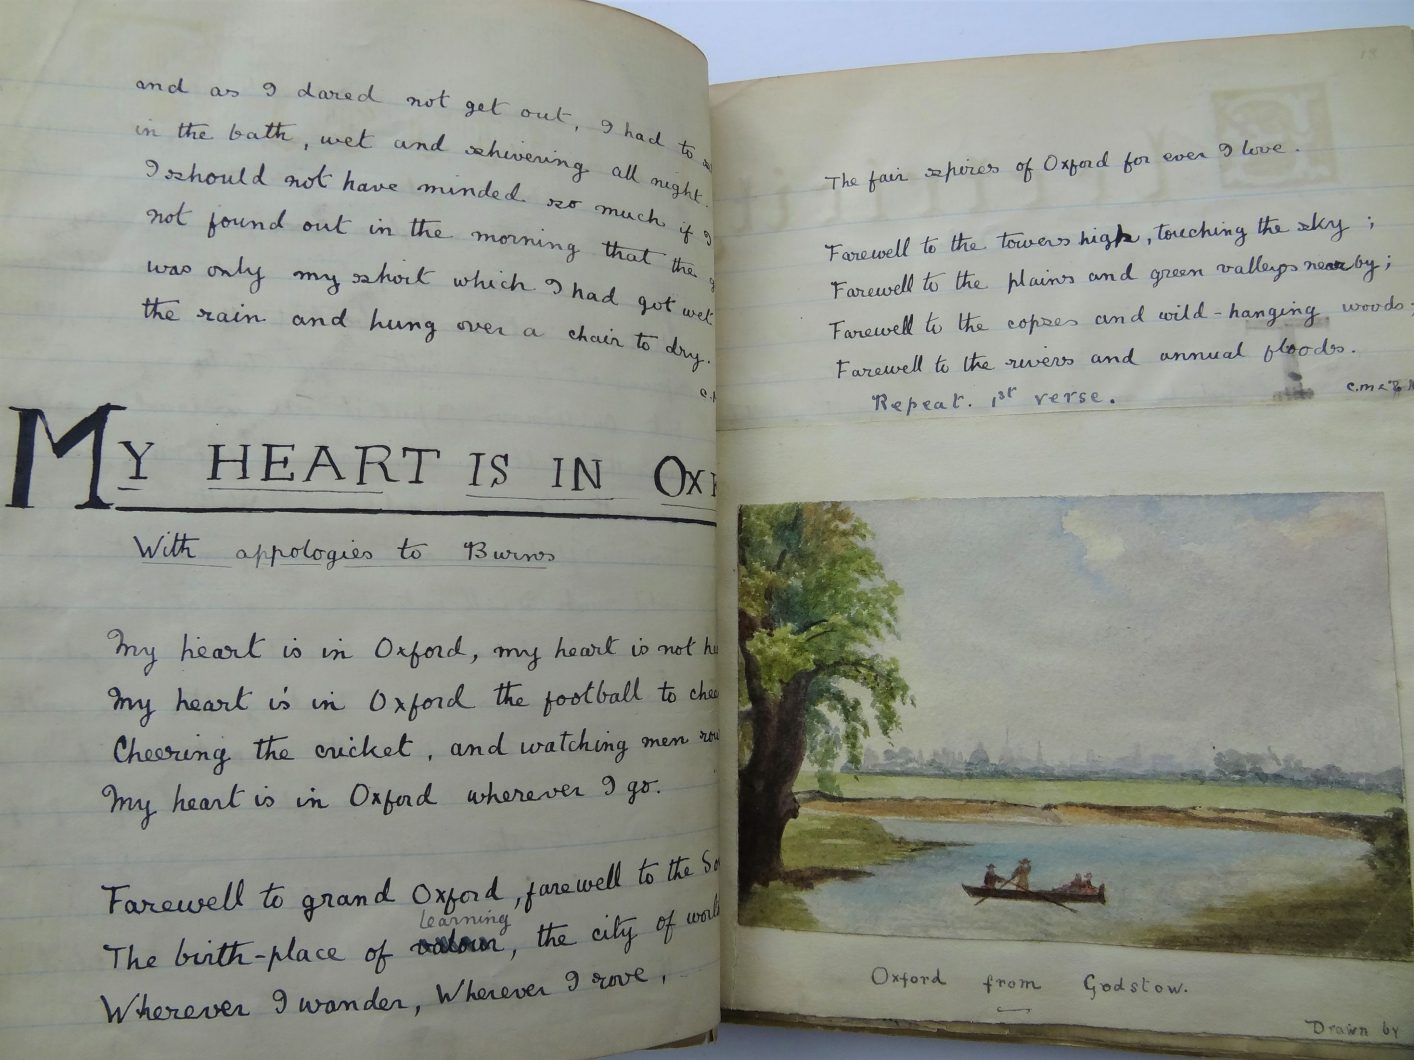 and as I dared not get out, I had to
in the bath, wet and shivering all night.
I should not have minded so much if I
not found out in the morning that the
was only my shirt which I had got wet
the rain and hung over a chair to dry.
MY HEART IS IN OX
With appologies to Burns
My heart is in Oxford, my heart is not
My heart is in Oxford the football to
Cheering the cricket, and watching men
My heart is in Oxford wherever I go.
Farewell to grand Oxford, farewell to the
learning
The birth-place of valour, the city of
Wherever I wander, Wherever I rove,
13
The fair spires of Oxford for ever I love.
Farewell to the towers high, touching the sky;
Farewell to the plains and green valleys near by;
Farewell to the copses and wild-hanging woods;
Farewell to the rivers and annual floods.
Repeat. 1st verse.
Oxford from Godstow.
Drawn by